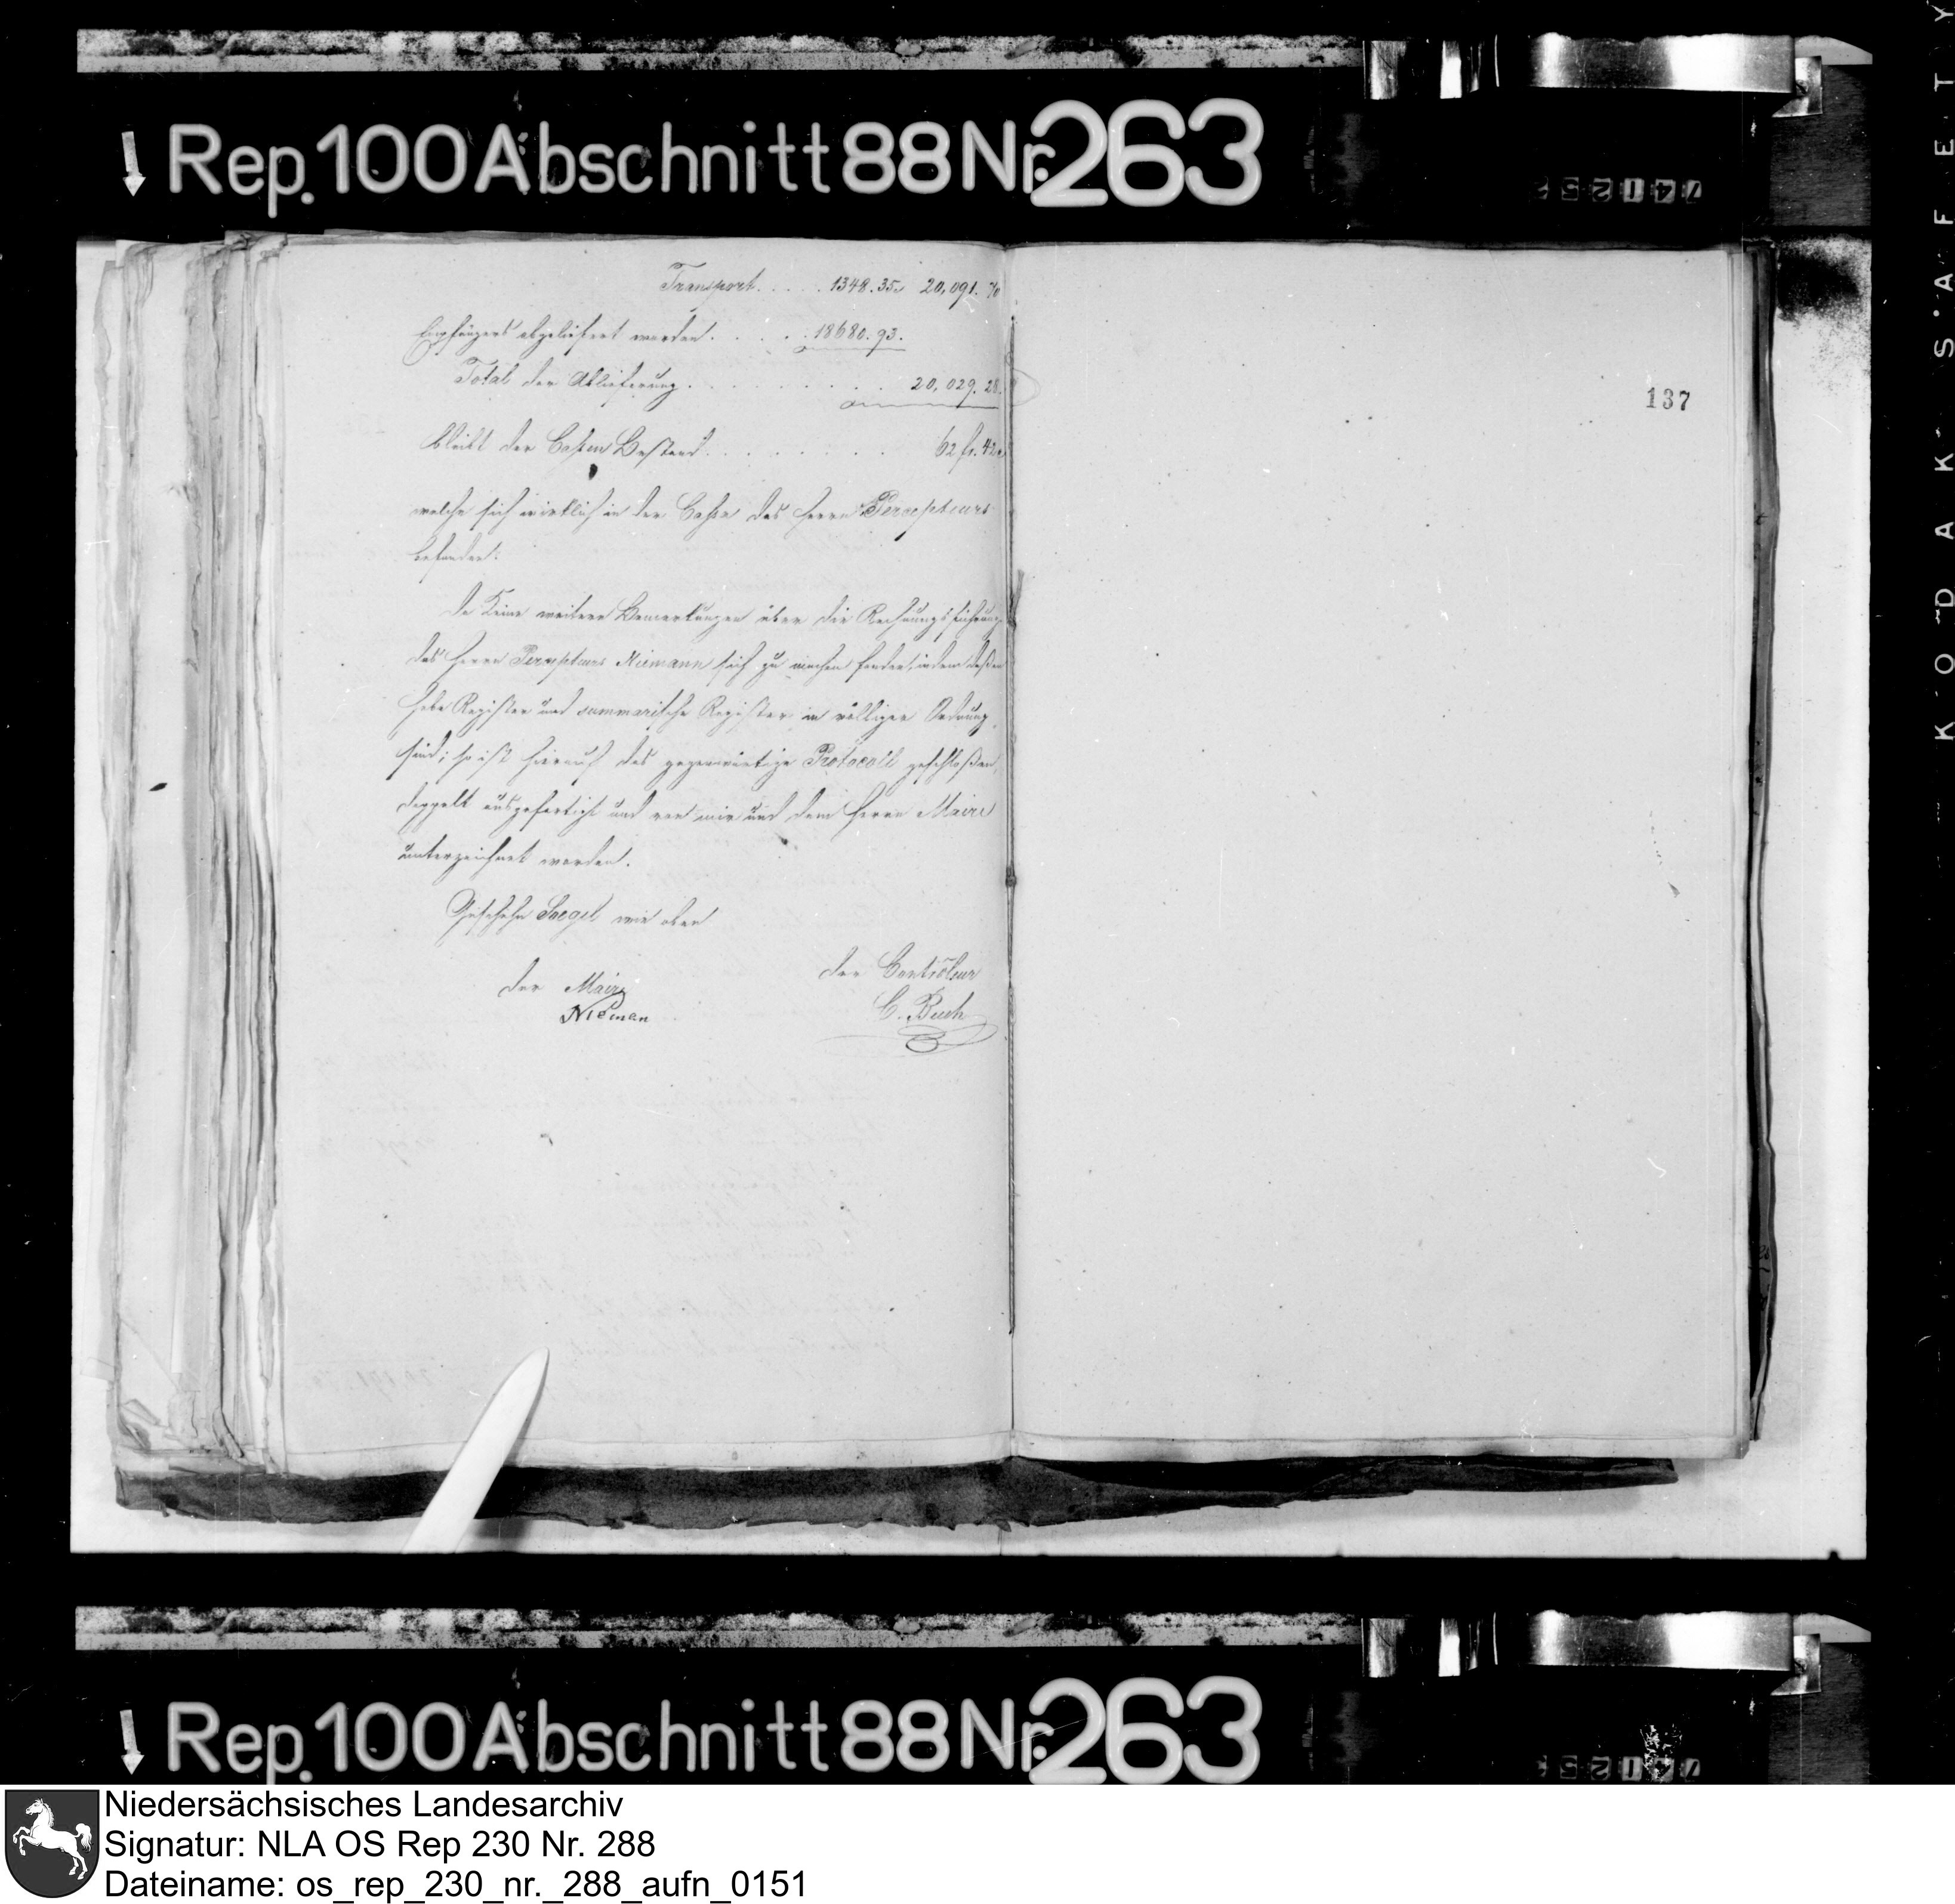 Rep. 100 Abschnitt 88 Nr. 263
741252
KODAK SAFETY
Transport. . . . . 1348. 35. 20,091. 70
Empfängers abgeliefert worden. . . . . 18680. 93.
Total der Ablieferung. . . . . . . . . 20,029. 28.
bleibt der Cassen Bestand. . . . . . . . 62 fr. 42 c
welche sich wirklich in der Cassa des Herrn Percepteurs
befanden.
Da keine weitere Bemerkungen über die Rechnungsführung
des Herrn Percepteurs Niemann sich zu machen fanden, indem deßen
Hebe Register und summarische Register in völliger Ordnung
sind; so ist hierauf das gegenwärtige Protocoll geschloßen,
doppelt ausgefertigt und von mir und dem Herrn Maire
unterzeichnet worden.
Geschehn Soegel wie oben
der Maire
Nieman
der Contrôleur
C. Buch
137
Rep. 100 Abschnitt 88 Nr. 263
Niedersächsisches Landesarchiv
Signatur: NLA OS Rep 230 Nr. 288
Dateiname: os_rep_230_nr._288_aufn_0151